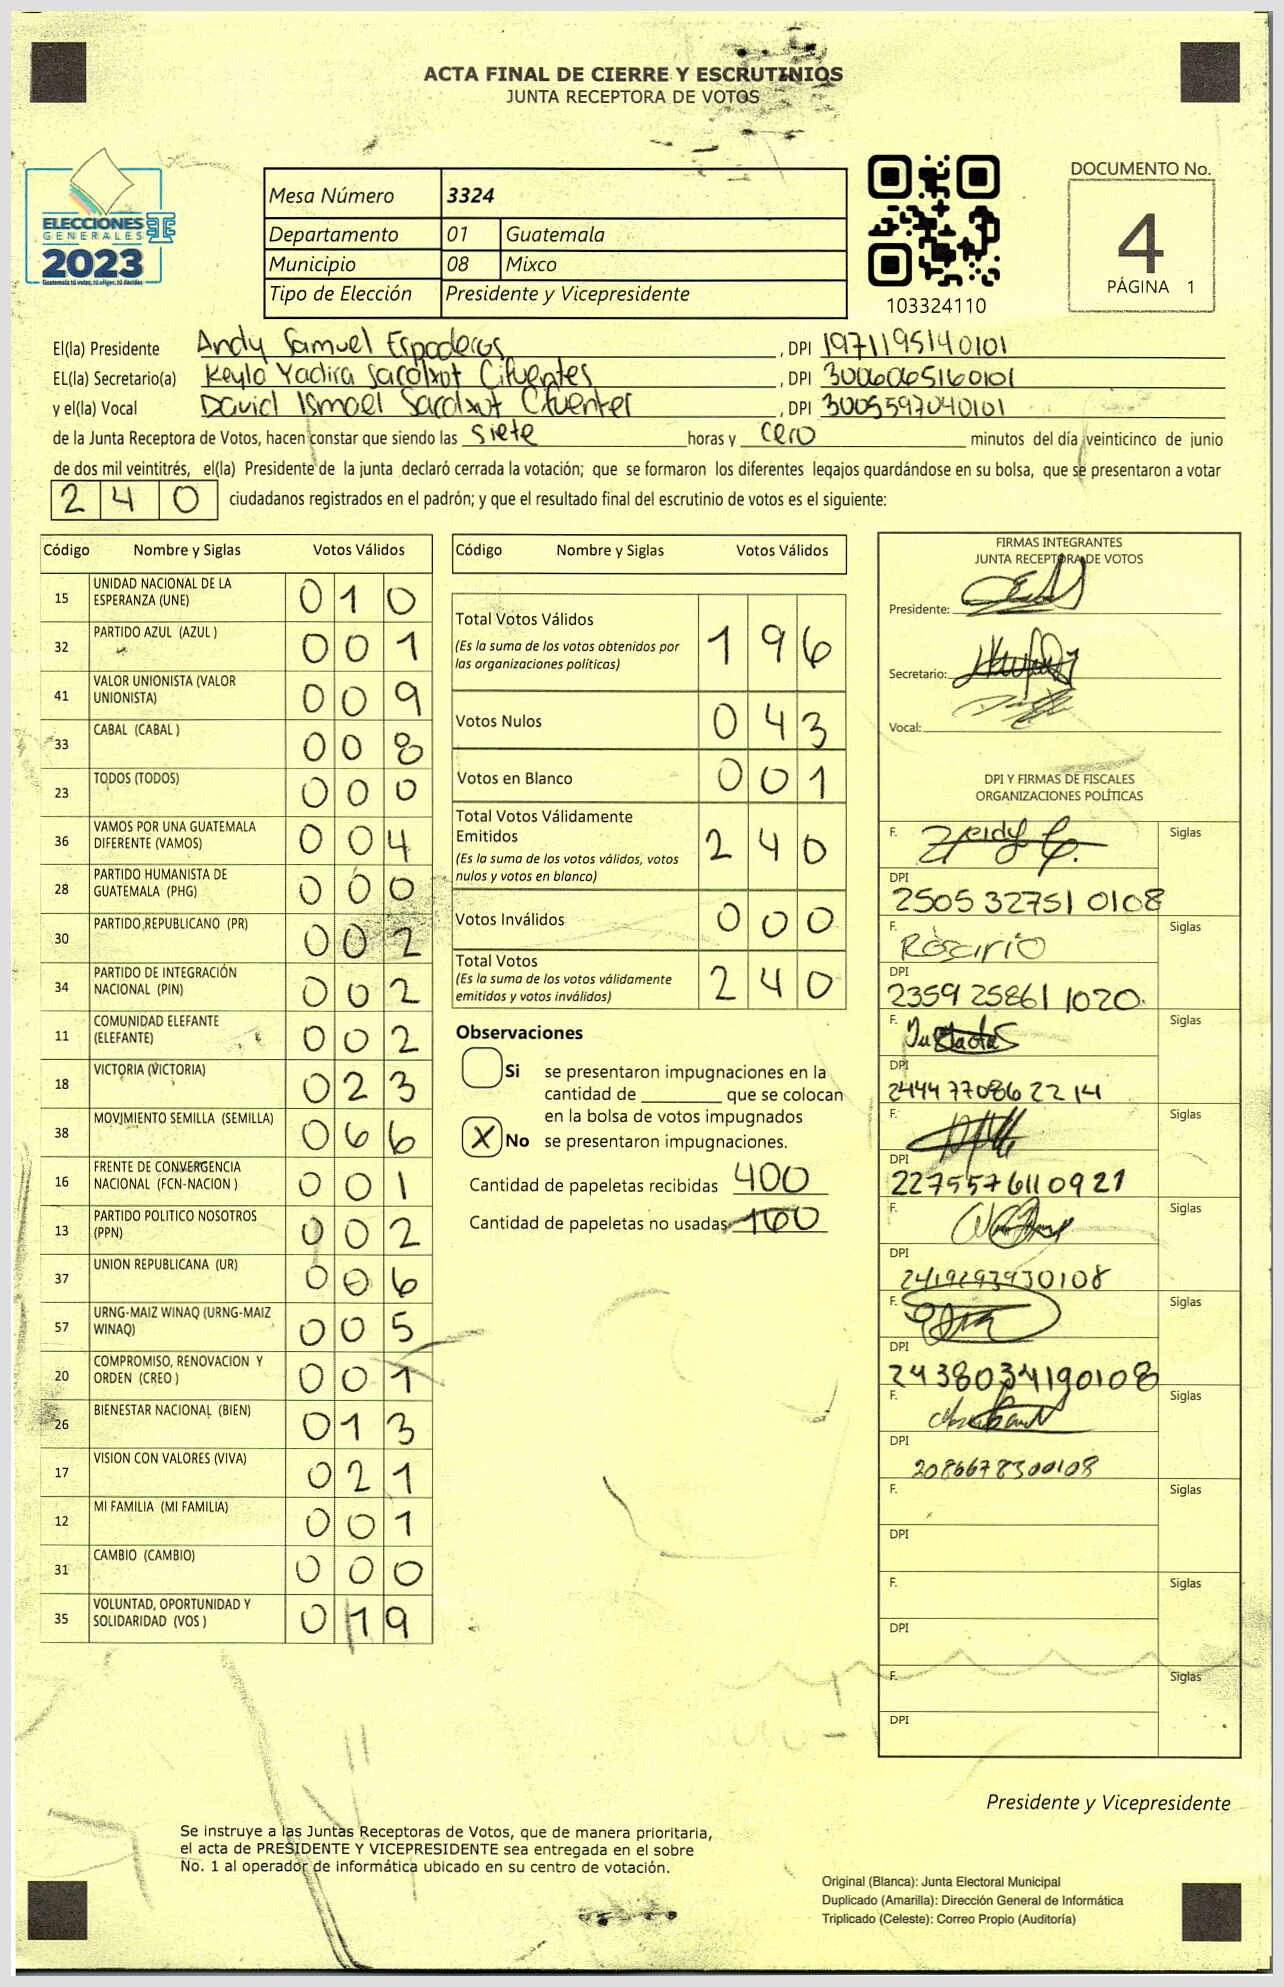 ACTA FINAL DE CIERRE Y ESCRUTINIOS
JUNTA RECEPTORA DE VOTOS
ELECCIONES
GENERALES
2023
Guatemala tú votas, tú eliges, tú decides
Mesa Número 3324
Departamento 01 Guatemala
Municipio 08 Mixco
Tipo de Elección Presidente y Vicepresidente
103324110
DOCUMENTO No.
4
PÁGINA 1
El(la) Presidente Andy Samuel Espaderos, DPI 1971195140101
EL(la) Secretario(a) Keyla Yadira Sacalxot Cifuentes, DPI 3006065160101
y el(la) Vocal David Ismael Sacalxot Cifuentes, DPI 3005597040101
de la Junta Receptora de Votos, hacen constar que siendo las siete horas y cero minutos del día veinticinco de junio
de dos mil veintitrés, el(la) Presidente de la junta declaró cerrada la votación; que se formaron los diferentes legajos quardándose en su bolsa, que se presentaron a votar
240 ciudadanos registrados en el padrón; y que el resultado final del escrutinio de votos es el siguiente:
Código Nombre y Siglas Votos Válidos
15 UNIDAD NACIONAL DE LA ESPERANZA (UNE) 010
32 PARTIDO AZUL (AZUL ) 001
41 VALOR UNIONISTA (VALOR UNIONISTA) 009
33 CABAL (CABAL ) 008
23 TODOS (TODOS) 000
36 VAMOS POR UNA GUATEMALA DIFERENTE (VAMOS) 004
28 PARTIDO HUMANISTA DE GUATEMALA (PHG) 000
30 PARTIDO REPUBLICANO (PR) 002
34 PARTIDO DE INTEGRACIÓN NACIONAL (PIN) 002
11 COMUNIDAD ELEFANTE (ELEFANTE) 002
18 VICTORIA (VICTORIA) 023
38 MOVIMIENTO SEMILLA (SEMILLA) 066
16 FRENTE DE CONVERGENCIA NACIONAL (FCN-NACION ) 001
13 PARTIDO POLITICO NOSOTROS (PPN) 002
37 UNION REPUBLICANA (UR) 006
57 URNG-MAIZ WINAQ (URNG-MAIZ WINAQ) 005
20 COMPROMISO, RENOVACION Y ORDEN (CREO ) 001
26 BIENESTAR NACIONAL (BIEN) 013
17 VISION CON VALORES (VIVA) 021
12 MI FAMILIA (MI FAMILIA) 001
31 CAMBIO (CAMBIO) 000
35 VOLUNTAD, OPORTUNIDAD Y SOLIDARIDAD (VOS ) 019
Código Nombre y Siglas Votos Válidos
Total Votos Válidos 196
(Es la suma de los votos obtenidos por
las organizaciones políticas)
Votos Nulos 043
Votos en Blanco 001
Total Votos Válidamente
Emitidos 240
(Es la suma de los votos válidos, votos
nulos y votos en blanco)
Votos Inválidos 000
Total Votos 240
(Es la suma de los votos válidamente
emitidos y votos inválidos)
Observaciones
Si se presentaron impugnaciones en la
cantidad de ________ que se colocan
en la bolsa de votos impugnados
X No se presentaron impugnaciones.
Cantidad de papeletas recibidas 400
Cantidad de papeletas no usadas 160
FIRMAS INTEGRANTES
JUNTA RECEPTORA DE VOTOS
Presidente:
Secretario:
Vocal:
DPI Y FIRMAS DE FISCALES
ORGANIZACIONES POLÍTICAS
F. Siglas
DPI
2505 32751 0108
F. Rosario Siglas
DPI
2359 25861 1020.
F. Siglas
DPI
2444 77086 2214
F. Siglas
DPI
2275576110921
F. Siglas
DPI
F. Siglas
DPI
2438034190108
F. Siglas
DPI
2086678300108
F. Siglas
DPI
F. Siglas
DPI
F. Siglas
DPI
Presidente y Vicepresidente
Se instruye a las Juntas Receptoras de Votos, que de manera prioritaria,
el acta de PRESIDENTE Y VICEPRESIDENTE sea entregada en el sobre
No. 1 al operador de informática ubicado en su centro de votación.
Original (Blanca): Junta Electoral Municipal
Duplicado (Amarilla): Dirección General de Informática
Triplicado (Celeste): Correo Propio (Auditoría)